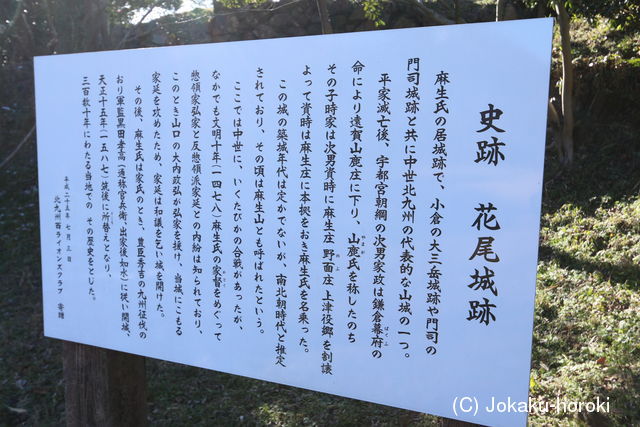 史跡　花尾城跡
麻生氏の居城跡で、小倉の大三岳城跡や門司の
門司城跡と共に中世北九州の代表的な山城の一つ。
平家滅亡後、宇都宮朝綱の次男家政は鎌倉幕府の
ばくふ
命により遠賀山鹿庄に下り、山鹿氏を称したのち
やまが
その子時家は次男資時に麻生庄 野面庄 上津役郷を割譲
のぶ
よって資時は麻生庄に本拠をおき麻生氏を名乗った。
この城の築城年代は定かでないが、南北朝時代と推定
されており、その頃は麻生山とも呼ばれたという。
ここでは中世に、いくたびかの合戦があったが、
なかでも文明十年(一四七八)麻生氏の家督をめぐって
惣領家弘家と反惣領派家延との内紛は知られており、
このとき山口の大内政弘が弘家を援け、当城にこもる
家延を攻めたため、家延は和議を乞い城を開けた。
その後、麻生氏は家氏のとき、豊臣秀吉の九州征伐の
おり軍監黒田孝高(通称官兵衛、出家後如水)に従い開城、
天正十五年(一五八七)筑後に所替えとなり、
三百数十年にわたる当地での その歴史をとじた。
平成二十五年 七月 三日
北九州西ライオンズクラブ 寄贈
(C) Jokaku-horoki